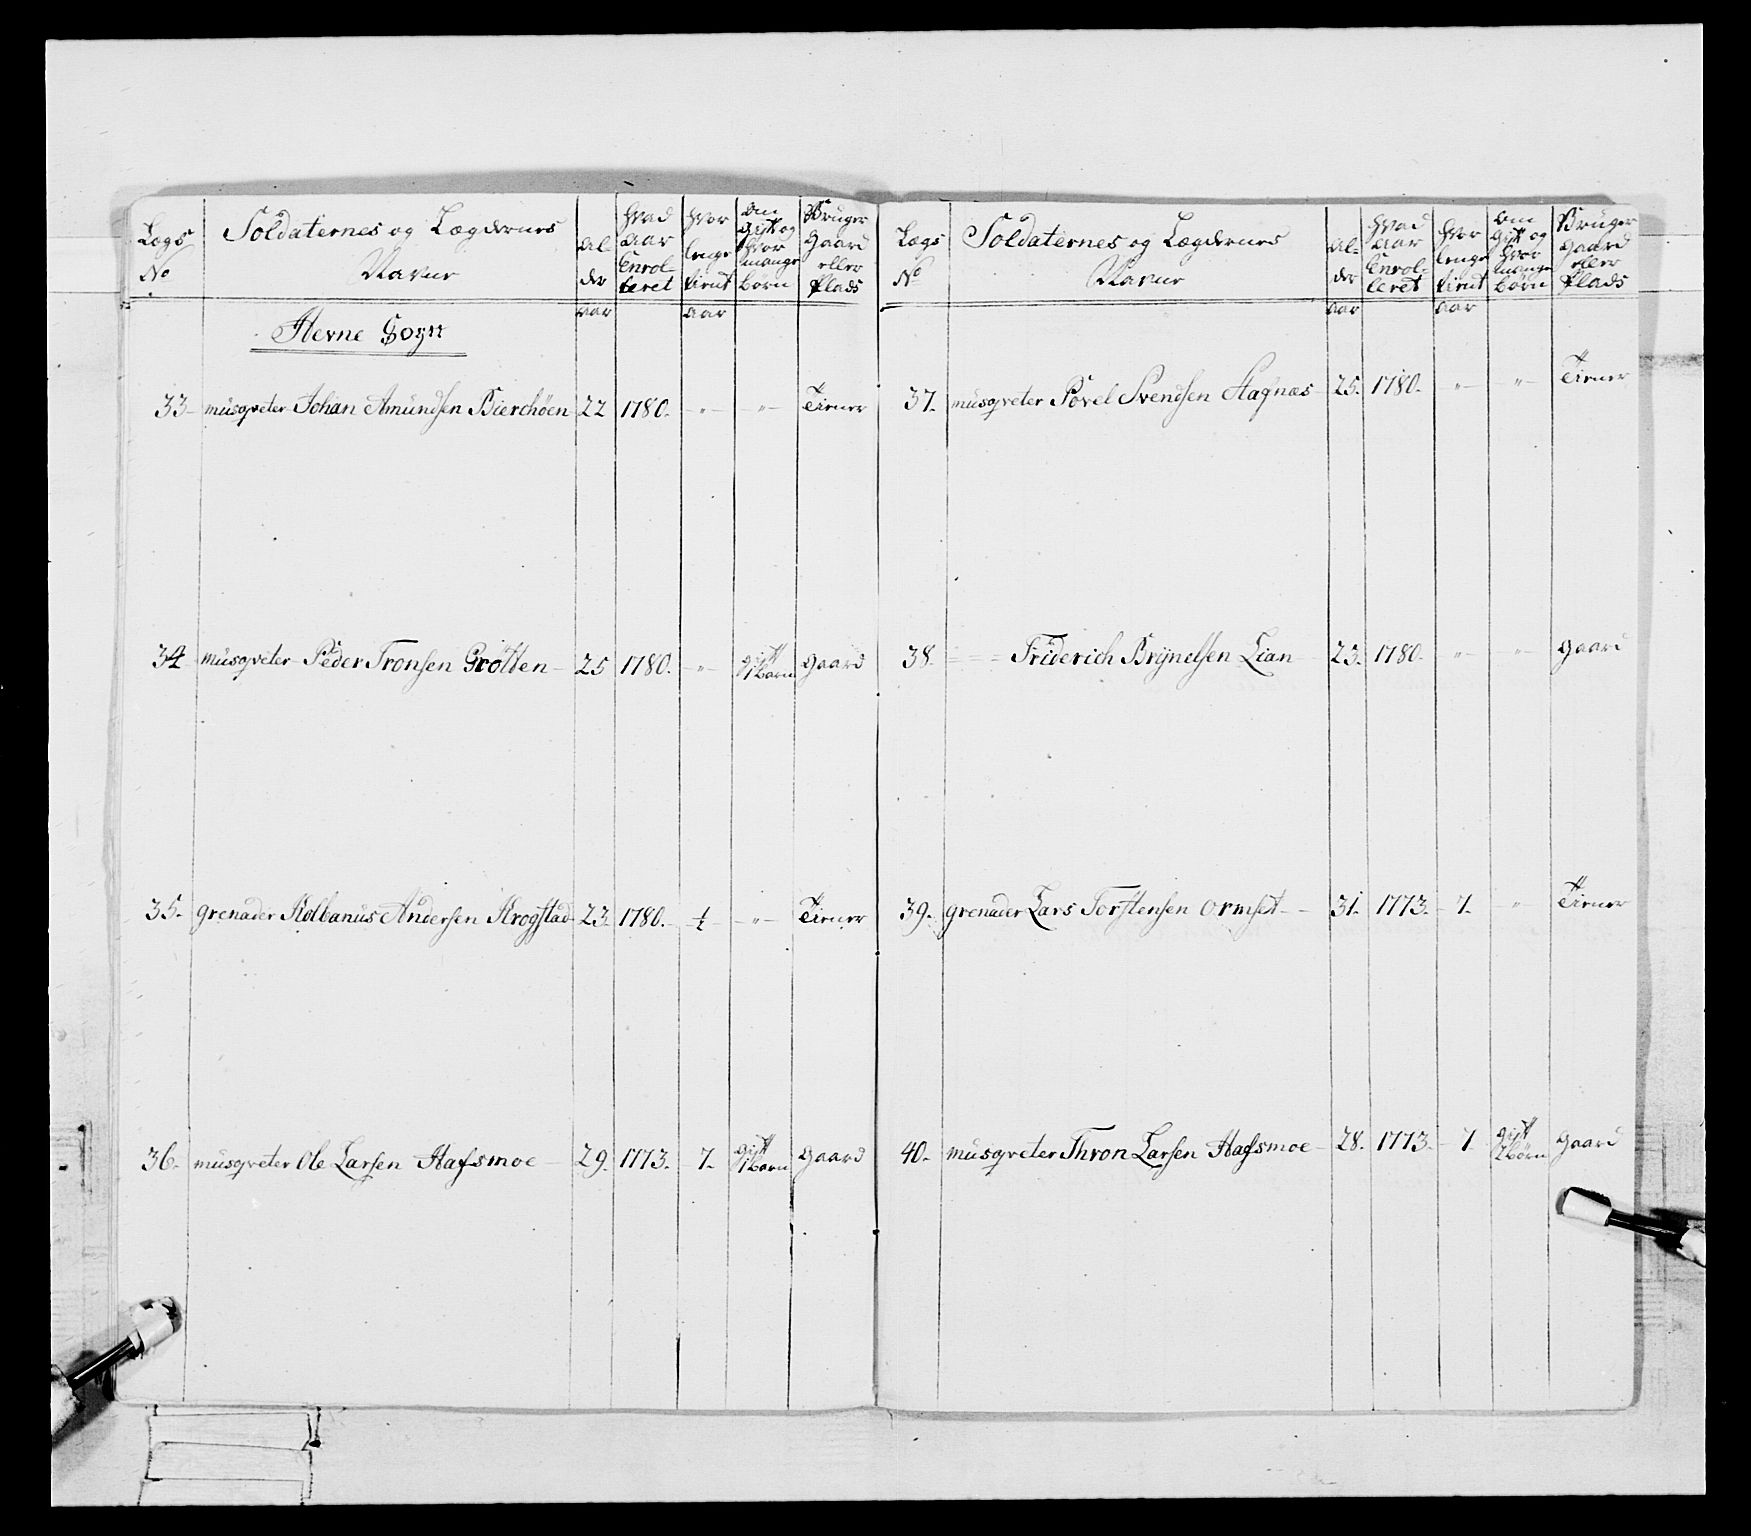 Lægs No
Soldaternes og Lægdernes Navne
Alder
Hvad Aar Enrolleret
Hvor lenge tient
Om gift og Hvor mange Børn
Bruger Gaard eller Plads
aar aar
Herne Sogn
33- musqveter Johan Amundsen Bierchöen 22 1780. -"- -"- Tiener
34 musqveter Peder Tronsen Grötten 25 1780. " gift 1 Barn gaard
35- grenader Kolbanus Andersen Krogstad 23. 1780. -"- Tiener
36- musqveter Ole Larsen Hafsmoe 29. 1773. 7. gift 1 Barn gaard
Lægs No
Soldaternes og Lægdernes Navne
Alder
Hvad Aar Enrolleret
Hvor lenge tient
Om gift og Hvor mange Børn
Bruger Gaard eller Plads
aar aar
37. musqveter Povel Svendsen Hagnæs 25. 1780. -"- -"- Tiener
38. Friderich Brynelsen Lian 23. 1780. -"- -"- gaard
39. grenader Lars Torstensen Ormset 31. 1773. 7. " Tiener
40. musqveter Thron Larsen Hafsmoe 28. 1773. 7 gift 2 Børn gaard